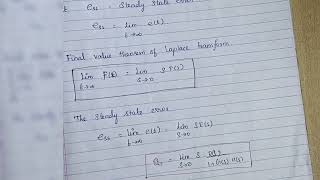 ess = Steady state error
ess = lim e(t)
t→∞
Final value theorem of Laplace transform
lim F(t) = lim S F(s)
t→∞ s→0
The steady state error
ess = lim e(t) = lim SE(s)
t→∞ s→0
= lim S R(s)
s→0 1+G(s) H(s)